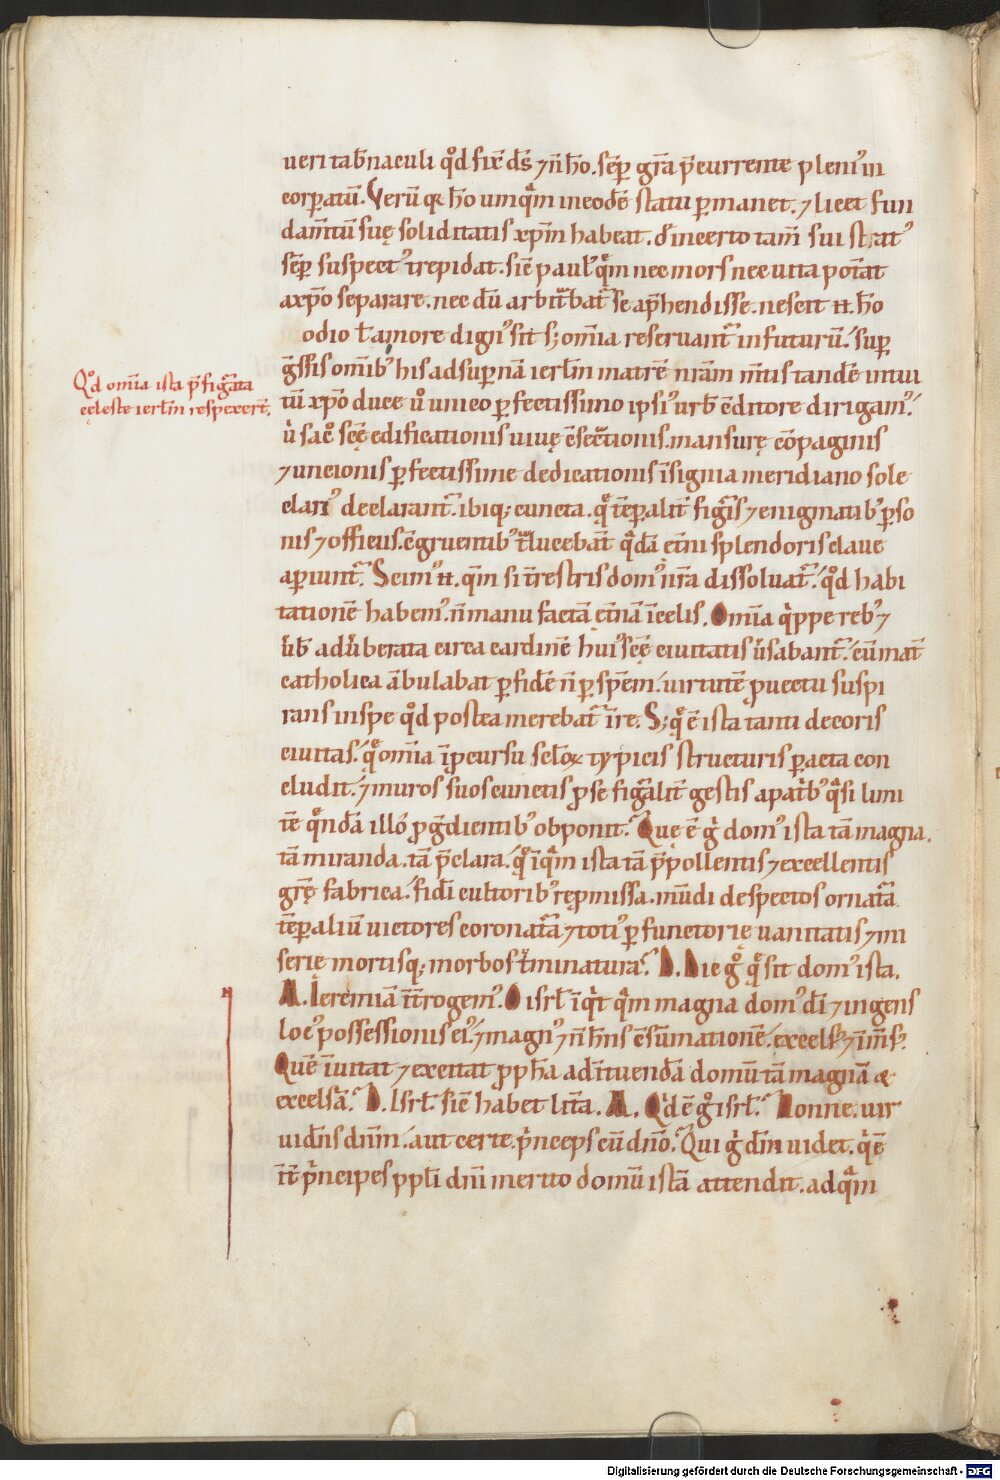 ueri tab̄naculi qḋ fix̄ ds̄ ⁊ n̄ ho̅. sēp gr̄a p̄currente pleni᷒ in
corpatū. Verū qꝛ ho̅ umq̄m in eodē statu ꝑmanet. ⁊ licet fun
dam̄tū suę soliditatis xp̄m habeat. d̓ incerto tam̄ sui stat᷒
sēp suspect᷒ trepidat. sic̄ paul᷒ q̄m nec mors nec uita pot̄at
a xp̄o separare. nec dū arbitᷓbat᷑ se ap̄hendisse. nescit .n. ho̅
odio ł amore dign᷒ sit s; om̄ia reseruant᷑ in futurū. Suꝑ
gᷓssis om̄ib᷒ his ad suꝑnā ierłm matrē nr̄am m̄tis tandē intui
Qḋ om̄ia ista p̄figᷓata
cęleste ierłm respexer̄t.
tū xp̄o duce u̇ unico ꝑfectissimo ipsi᷒ urb̄ c̄ditore dirigam᷒.
u̇ sac̄ sc̄ę edificationis uiuę c̄sectionis. mansurę co̅paginis
⁊ uncionis ꝑfectissime dedicationis īsignia meridiano sole
clari᷒ declarant᷑. ibiq; cuncta. q̄ tēꝑalit̄ figᷓis ⁊ enigmatib᷒ ꝑso
nis ⁊ officiis. c̄gruentib᷒ tᷓlucebāt qᷓdā et̄ni splendoris claue
aꝑiunt᷑. Scim᷒ .n. qm̄ si t̄restris dom᷒ nr̄a dissoluat᷑. qḋ habi
tationē habem᷒ n̄ manu factā et̄nā ī celis. Omīa q̇ppe reb᷒ ⁊
ūb̄ adūberata circa cardinē hui᷒ sc̄ę ciuitatis ūsabant᷑. cū mat̄
catholica ābulabat ꝑ fidē n̄ ꝑ spēm. uirtutē ꝓuectu suspi
rans in spe qḋ postea merebat᷑ īire. S; q̄ ē ista tanti decoris
ciuitas. q̄ om̄ia ī ꝓcursu scłoꝝ typicis structuris ꝑacta con
cludit. ⁊ muros suos cunctis ꝓ se figᷓalit̄ gestis apāt̄b᷒ qᷓsi limi
tē qn̄dā illo ꝓgᷓdientib᷒ obponit. Quę ē gͥ dom᷒ ista tā magna.
tā miranda. tā p̄clara. qͦ īqᷓm ista tā p̄pollentis ⁊ excellentis
gr̄ę fabrica. fidi cultorib᷒ repmissa. mūdi despectos ornatᷓa.
tēꝑaliū uictores coronatᷓa ⁊ toti᷒ ꝑfunctorię uanitatis ⁊ mi
serię mortisq; morbos t̄minatura. D. Dic gͦ q̄ sit dom᷒ ista.
A. Ieremiā īt̄rogem᷒. O isrł īq̇t qᷓm magna dom᷒ di̅ ⁊ ingens
loc᷒ possessionis ei᷒. ⁊ magn᷒ ⁊ n̄ hn̄s c̄sūmationē. excels᷒ ⁊ im̄s᷒.
Quē īuitat ⁊ excitat ꝓpha̅ ad īt̄uendā domū tā magnā &
excelsā. D. Isrł sic̄ habet lit̄a. A. Qͥd ē gͦ isrł. Nonne. uir
uidn̄s dnm̄. aut certe. pͥnceps cū dn̄o. Qui gͥ dm̄ uidet. q̇ ē
īt̄ pͥncipes ppłi dn̄i merito domū istā attendit. ad qᷓm
Digitalisierung gefördert durch die Deutsche Forschungsgemeinschaft - DFG